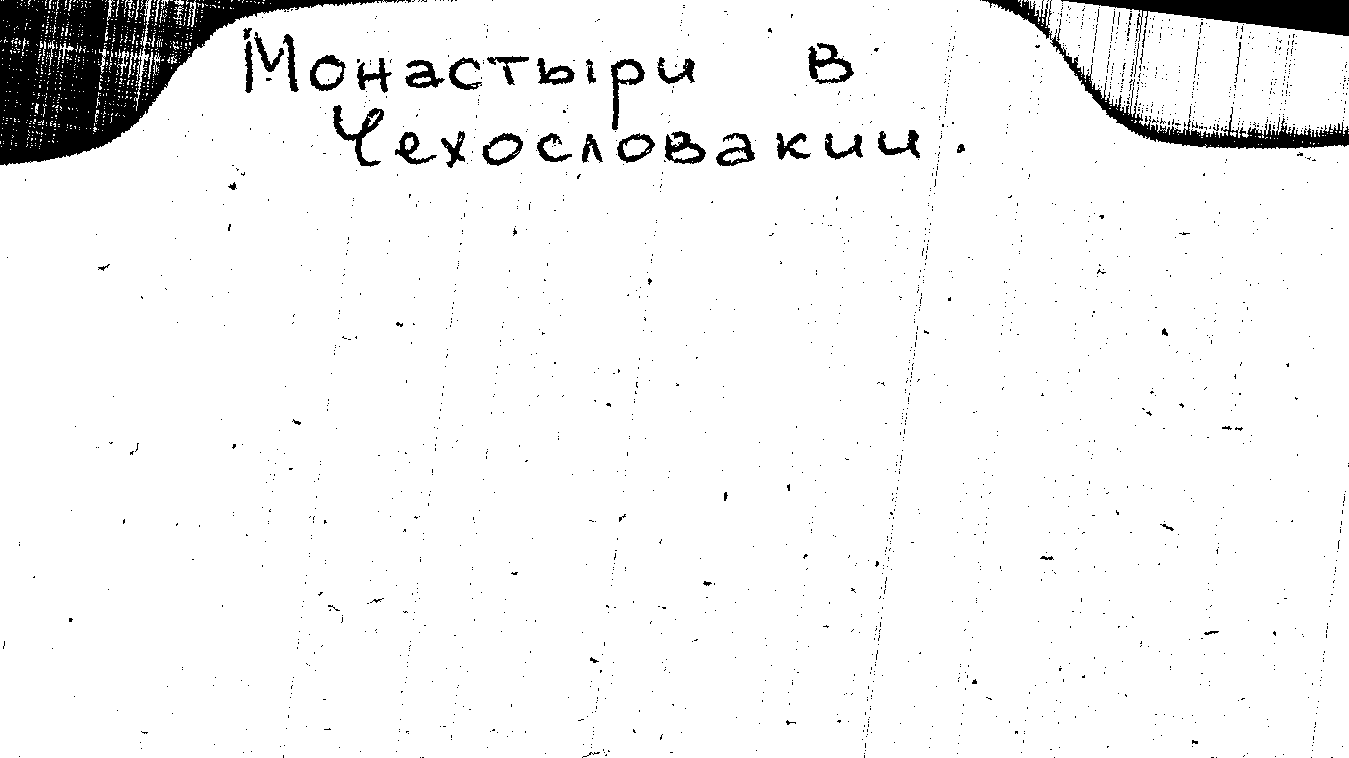 Монастыри в
Чехословакии.